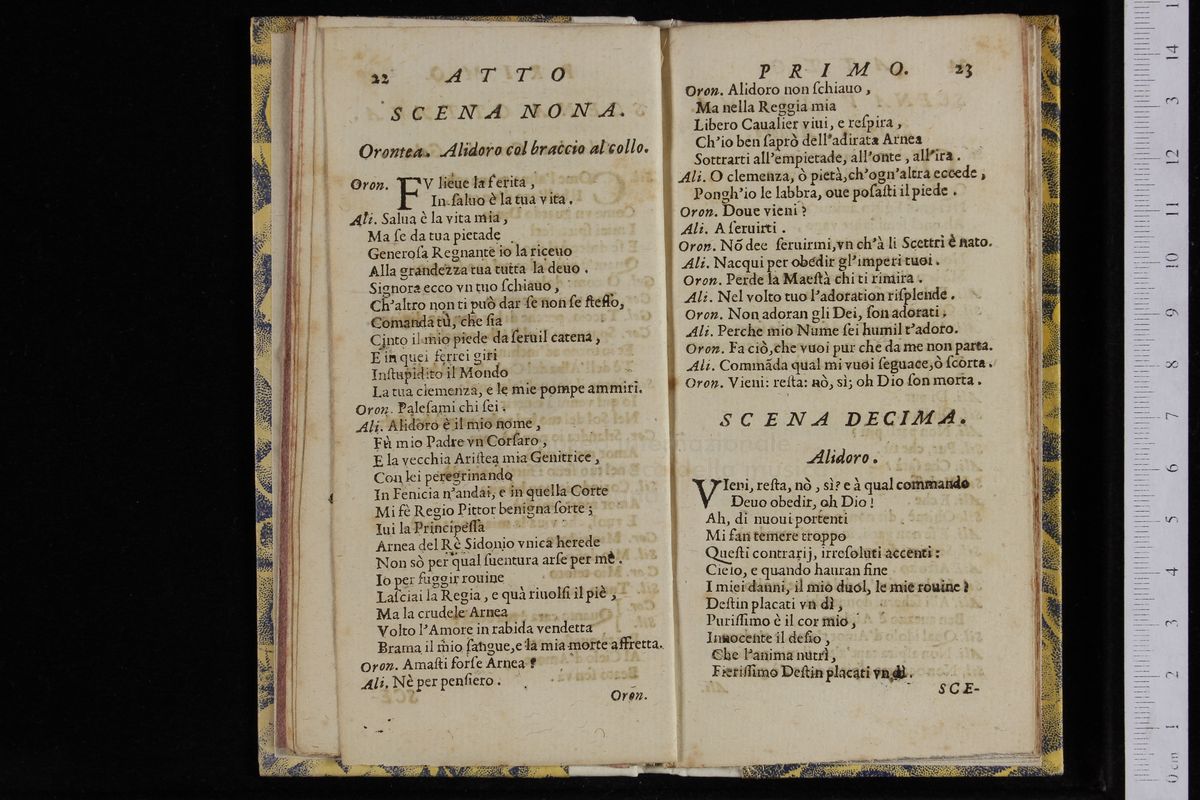 22 ATTO
SCENA NONA.
Orontea. Alidoro col braccio al collo.
Oron. FV lieue la ferita,
In saluo è la tua vita.
Ali. Salua è la vita mia,
Ma se da tua pietade
Generosa Regnante io la riceuo
Alla grandezza tua tutta la deuo.
Signora ecco vn tuo schiauo,
Ch'altro non ti può dar se non se stesso,
Comanda tù, che sia
Cinto il mio piede da seruil catena,
E in quei ferrei giri
Instupidito il Mondo
La tua clemenza, e le mie pompe ammiri.
Oron. Palesami chi sei.
Ali. Alidoro è il mio nome,
Fù mio Padre vn Corsaro,
E la vecchia Aristea mia Genitrice,
Con lei peregrinando
In Fenicia n'andai, e in quella Corte
Mi fè Regio Pittor benigna sorte;
Iui la Principessa
Arnea del Rè Sidonio vnica herede
Non sò per qual suentura arse per me.
Io per fuggir rouine
Lasciai la Regia, e quà riuolsi il piè,
Ma la crudele Arnea
Volto l'Amore in rabida vendetta
Brama il mio sangue, e la mia morte affretta.
Oron. Amasti forse Arnea?
Ali. Nè per pensiero.
Oron.
PRIMO. 23
Oron. Alidoro non schiauo,
Ma nella Reggia mia
Libero Caualier viui, e respira,
Ch'io ben saprò dell'adirata Arnea
Sottrarti all'empietade, all'onte, all'ira.
Ali. O clemenza, ò pietà, ch'ogn'altra eccede,
Pongh'io le labbra, oue posasti il piede.
Oron. Doue vieni?
Ali. A seruirti.
Oron. Nõ dee seruirmi, vn ch'à li Scettri è nato.
Ali. Nacqui per obedir gl'imperi tuoi.
Oron. Perde la Maestà chi ti rimira.
Ali. Nel volto tuo l'adoration risplende.
Oron. Non adoran gli Dei, son adorati.
Ali. Perche mio Nume sei humil t'adoro.
Oron. Fa ciò, che vuoi pur che da me non parta.
Ali. Commãda qual mi vuoi seguace, ò scorta.
Oron. Vieni: resta: nò, sì; oh Dio son morta.
SCENA DECIMA.
Alidoro.
VIeni, resta, nò, sì? e à qual commando
Deuo obedir, oh Dio!
Ah, di nuoui portenti
Mi fan temere troppo
Questi contrarij, irresoluti accenti:
Cielo, e quando hauran fine
I miei danni, il mio duol, le mie rouine?
Destin placati vn dì,
Purissimo è il cor mio,
Innocente il desio,
Che l'anima nutrì,
Fierissimo Destin placati vn dì.
SCE-